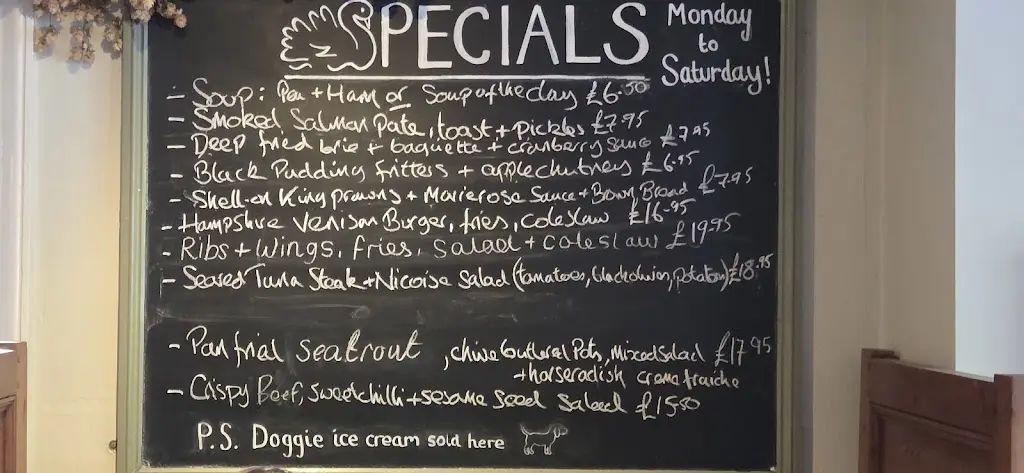 SPECIALS Monday to Saturday!
- Soup: Pea + Ham or Soup of the day £6.50
- Smoked Salmon Pate, toast + pickles £7.95
- Deep fried brie + baguette + cranberry sauce £7.95
- Black Pudding fritters + apple chutney £6.95
- Shell-on King prawns + Marierose Sauce + Brown Bread £7.95
- Hampshire Venison Burger, fries, coleslaw £16.95
- Ribs + Wings, fries, salad + coleslaw £19.95
- Seared Tuna Steak + Nicoise Salad (tomatoes, black olives, potatoes) £18.95
- Pan fried seatrout, chive buttered Pots, Mixed Salad £17.95
+ horseradish creme fraiche
- Crispy Beef, sweet chilli + sesame seed salad £15.50
P.S. Doggie ice cream sold here